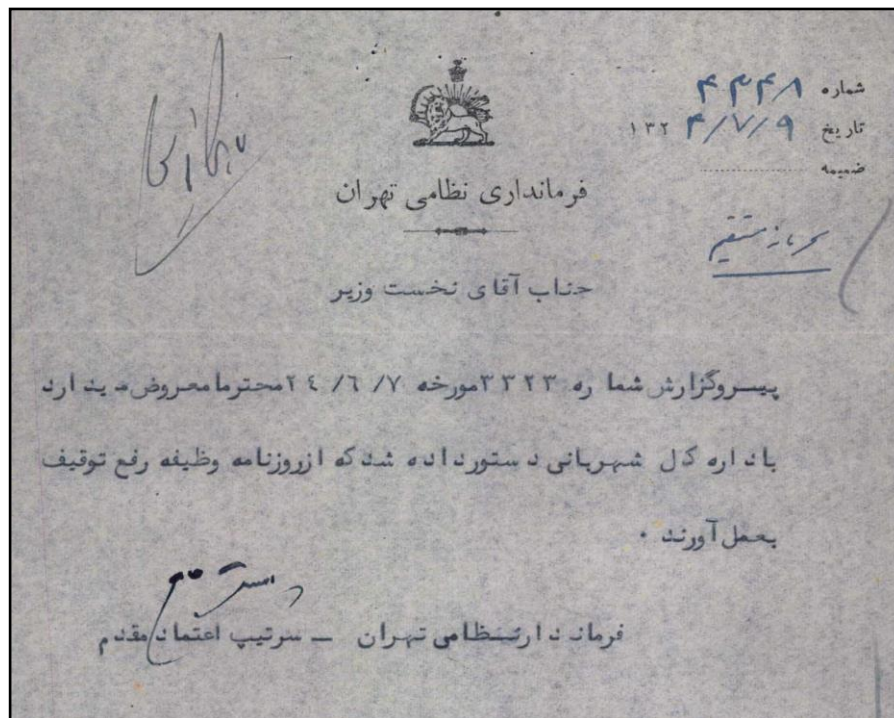 شماره ۴۳۴۸
تاریخ ۱۳۲۴/۷/۹
ضمیمه
فرمانداری نظامی تهران
محرمانه مستقیم
جناب آقای نخست وزیر
پیروگزارش شماره ۳۳۲۳مورخه ۷/ ۶/ ۲۴محترمامعروض میدارد
باداره کل شهربانی دستورداده شدکه ازروزنامه وظیفه رفع توقیف
بعمل آورند .
فرماندارنظامی تهران – سرتیپ اعتمادمقدم